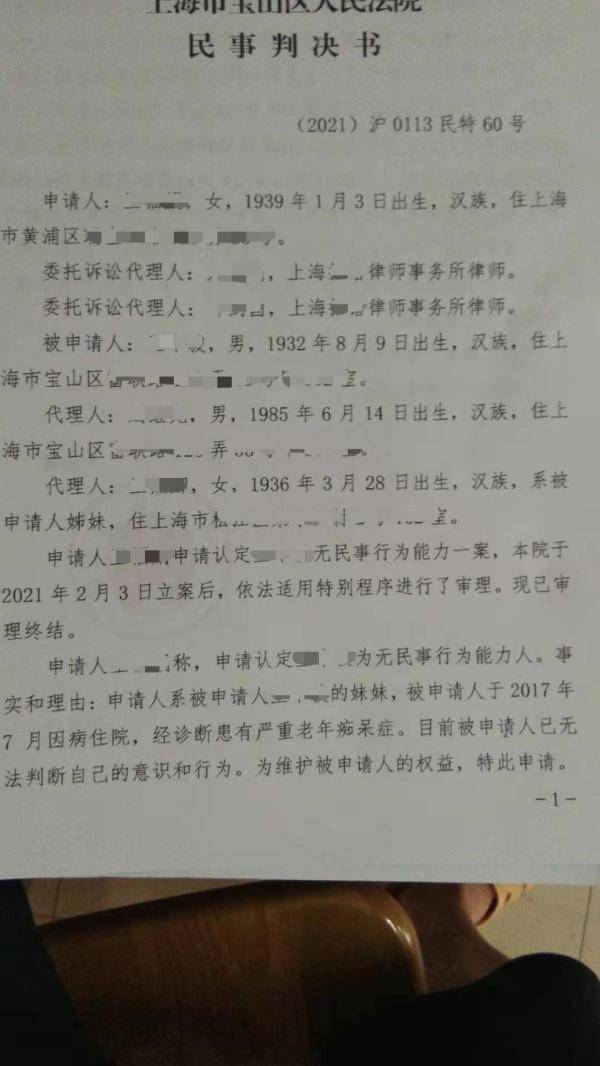 上海市宝山区人民法院
民事判决书
（2021）沪0113民特60号
申请人：女，1939年1月3日出生，汉族，住上海
市黄浦区。
委托诉讼代理人：，上海律师事务所律师。
委托诉讼代理人：，上海律师事务所律师。
被申请人：，男，1932年8月9日出生，汉族，住上
海市宝山区室。
代理人：，男，1985年6月14日出生，汉族，住上
海市宝山区弄。
代理人：，女，1936年3月28日出生，汉族，系被
申请人姊妹，住上海市室。
申请人申请认定无民事行为能力一案，本院于
2021年2月3日立案后，依法适用特别程序进行了审理。现已审
理终结。
申请人称，申请认定为无民事行为能力人。事
实和理由：申请人系被申请人的妹妹，被申请人于2017年
7月因病住院，经诊断患有严重老年痴呆症。目前被申请人已无
法判断自己的意识和行为。为维护被申请人的权益，特此申请。
-1-